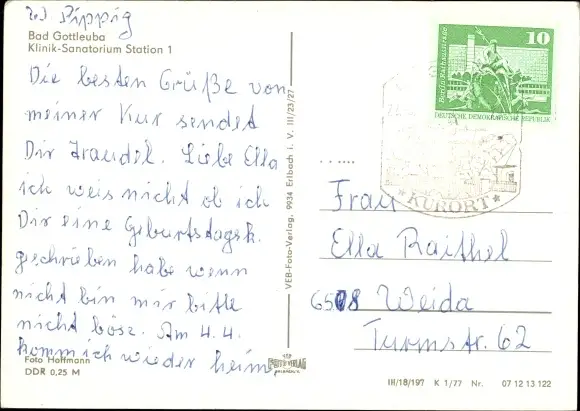 W. Pippig
Bad Gottleuba
Klinik-Sanatorium Station 1
Die besten Grüße von
meiner Kur sendet
Dir Traudel. Liebe Ella
ich weis nicht ob ich
Dir eine Geburtstagsk.
geschrieben habe wenn
nicht bin mir bitte
nicht böse. Am 4.4.
komm ich wieder heim
Foto Hoffmann
DDR 0,25 M
VEB-Foto-Verlag, 9934 Erlbach i. V. III/23/27
10
Berlin-Rathausstraße
DEUTSCHE DEMOKRATISCHE REPUBLIK
KURORT
Frau
Ella Raithel
6508 Weida
Turmstr. 62
III/18/197 K 1/77 Nr. 07 12 13 122